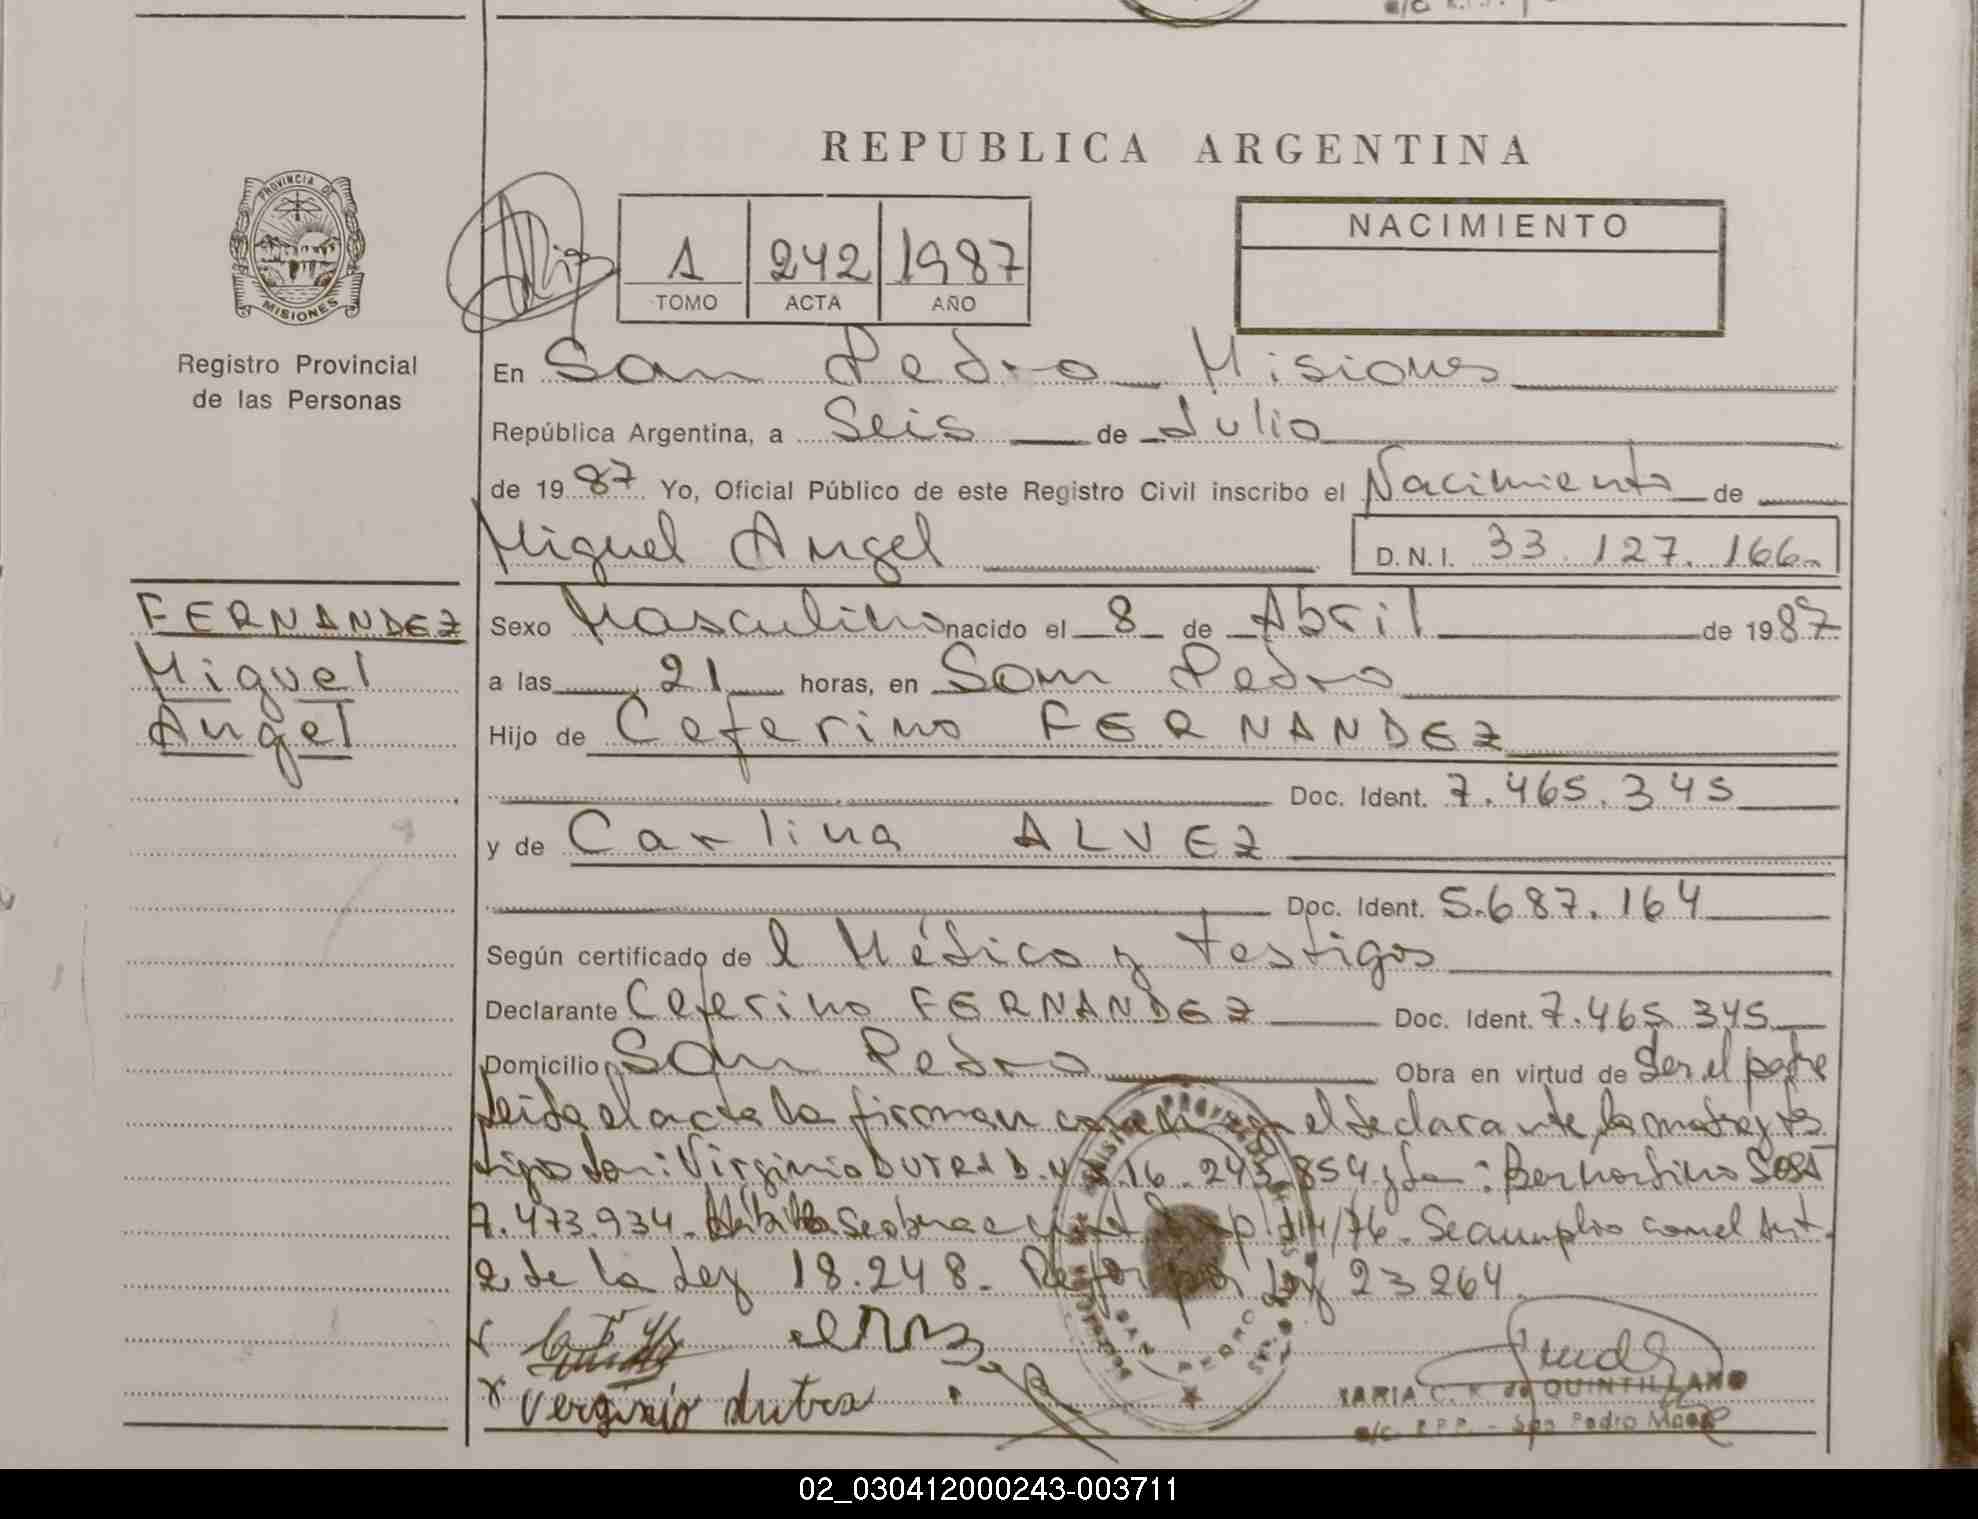 REPUBLICA ARGENTINA
PROVINCIA DE
MISIONES
Registro Provincial
de las Personas
1 242 1987
TOMO ACTA AÑO
NACIMIENTO
En San Pedro Misiones
República Argentina, a Seis de Julio
de 1987 Yo, Oficial Público de este Registro Civil inscribo el Nacimiento de
Miguel Angel D.N.I. 33.127.166
FERNANDEZ
Miguel
Angel
Sexo Masculino nacido el 8 de Abril de 1987
a las 21 horas, en San Pedro
Hijo de Ceferino FERNANDEZ
Doc. Ident. 7.465.345
y de Carlina ALVEZ
Doc. Ident. 5.687.164
Según certificado de l Médico y Testigos
Declarante Ceferino FERNANDEZ Doc. Ident. 7.465.345
Domicilio San Pedro Obra en virtud de Ser el padre
Leida el acta la firman el declarante, la madre y tes
tigos Don: Virginio DUTRA D. 16.245.854 y Don: Bernardino SOSA
7.473.934. Se cumplio con el Art.
2 de la Ley 18.248. Ref. por Ley 23264
Verginio dutra
SAN PEDRO
MARIA C. K. de QUINTILLANO
a/c. R.P.P. - San Pedro Mnes
02_030412000243-003711